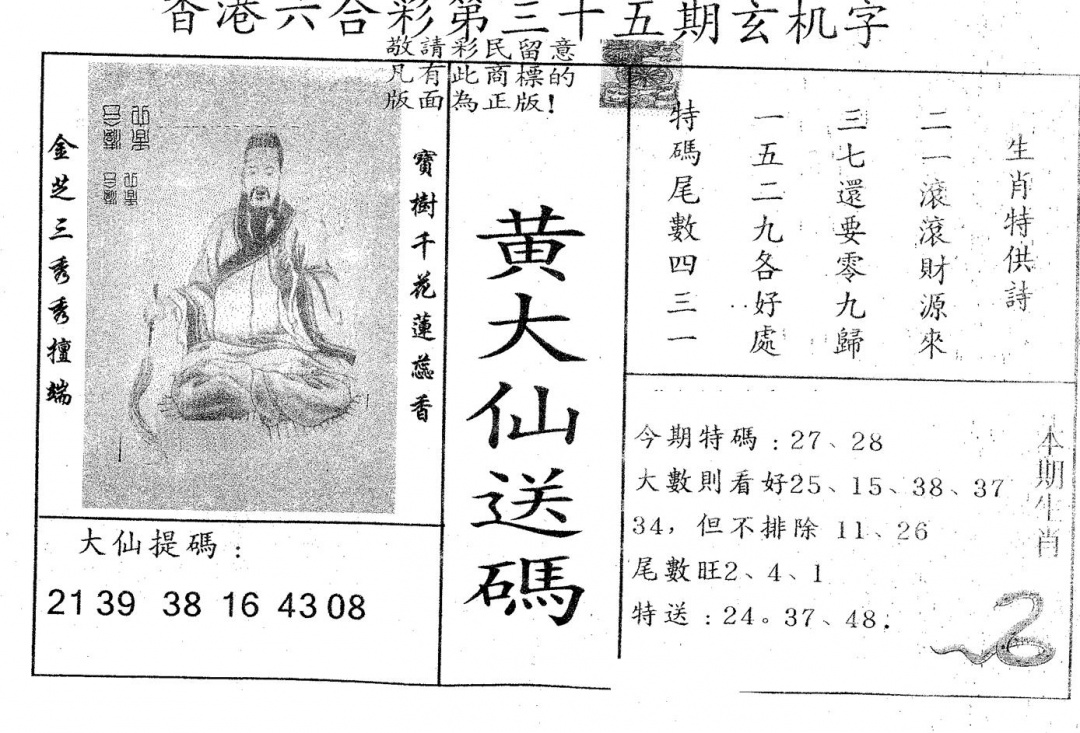 香港六合彩第三十五期玄机字
敬請彩民留意
凡有此商標的
版面為正版!
金芝三秀秀擅端
寶樹千花蓮蕊香
黃大仙送碼
生肖特供詩
二一滾滾財源來
三七還要零九歸
一五二九各好處
特碼尾數四三一
今期特碼:27、28
大數則看好25、15、38、37
34，但不排除 11、26
尾數旺2、4、1
特送:24。37、48.
本期生肖
大仙提碼:
21 39 38 16 43 08